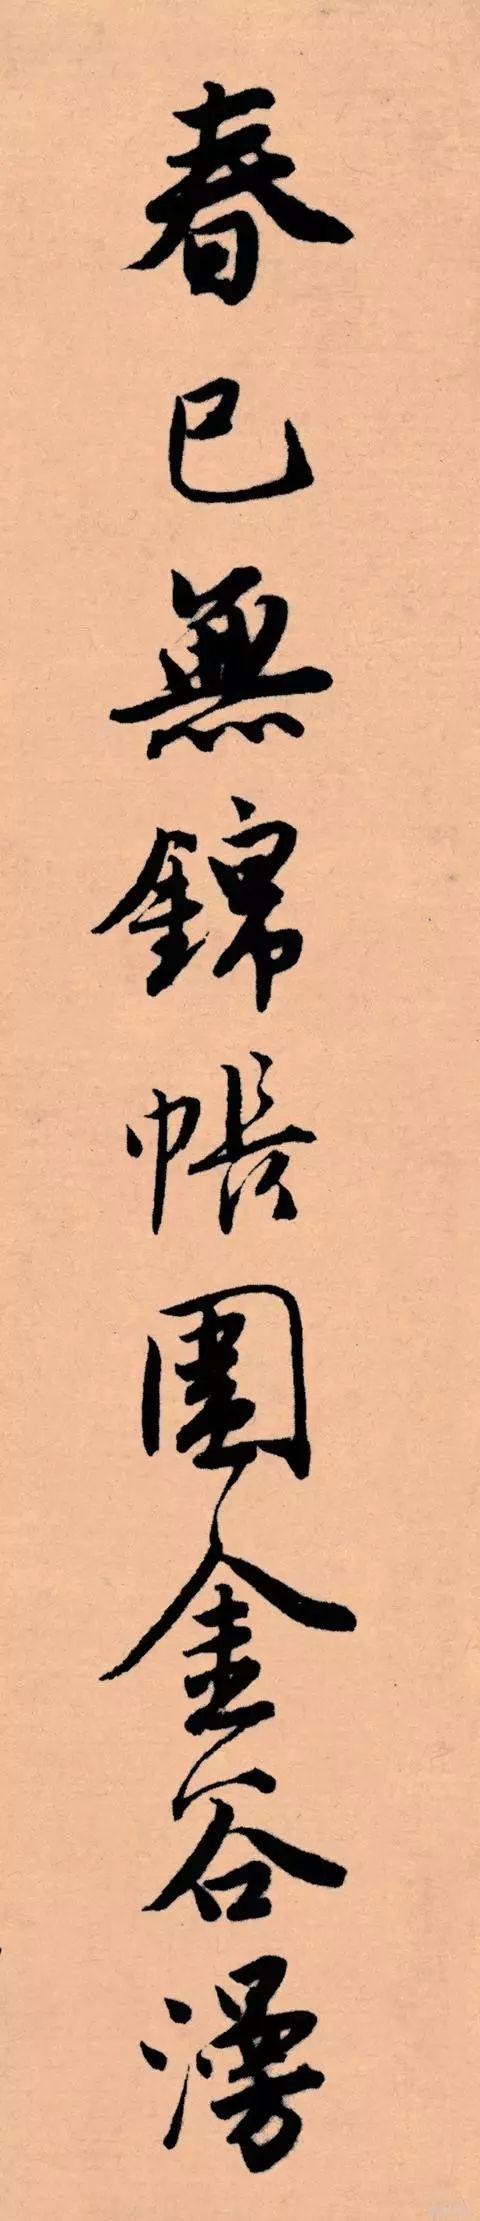 春已無錦帳圍金谷漫